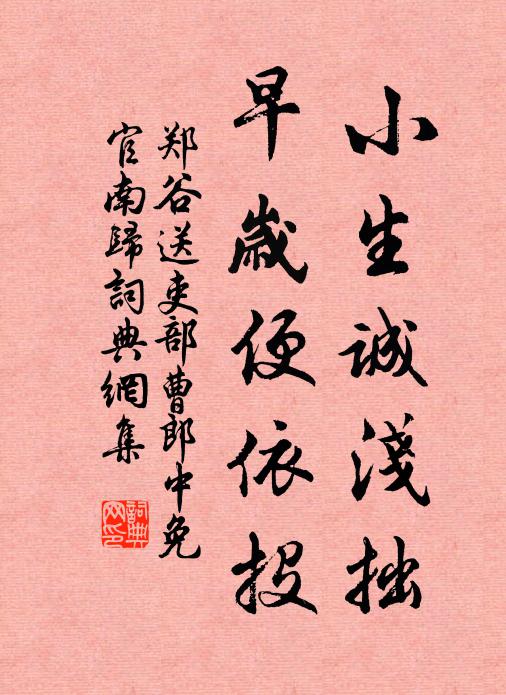 小生诚淺拙
早歲便依投
郑谷送吏部曹郎中免
官南歸詞典網集
詞典网印